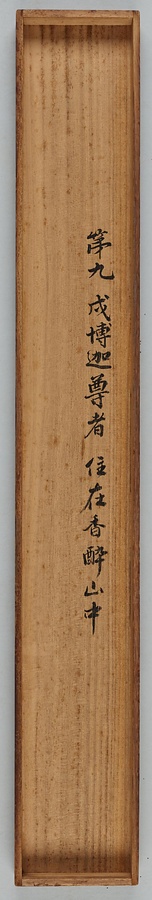 第九 戍博迦尊者 住在香醉山中